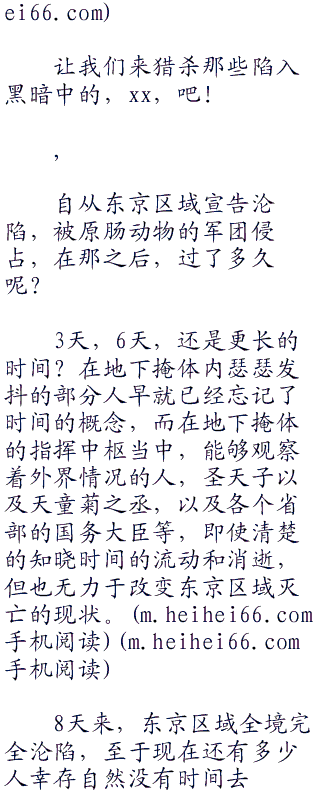 ei66.com)
让我们来猎杀那些陷入
黑暗中的，xx，吧！
，
自从东京区域宣告沦
陷，被原肠动物的军团侵
占，在那之后，过了多久
呢？
3天，6天，还是更长的
时间？在地下掩体内瑟瑟发
抖的部分人早就已经忘记了
时间的概念，而在地下掩体
的指挥中枢当中，能够观察
着外界情况的人，圣天子以
及天童菊之丞，以及各个省
部的国务大臣等，即使清楚
的知晓时间的流动和消逝，
但也无力于改变东京区域灭
亡的现状。(m.heihei66.com
手机阅读)(m.heihei66.com
手机阅读)
8天来，东京区域全境完
全沦陷，至于现在还有多少
人幸存自然没有时间去